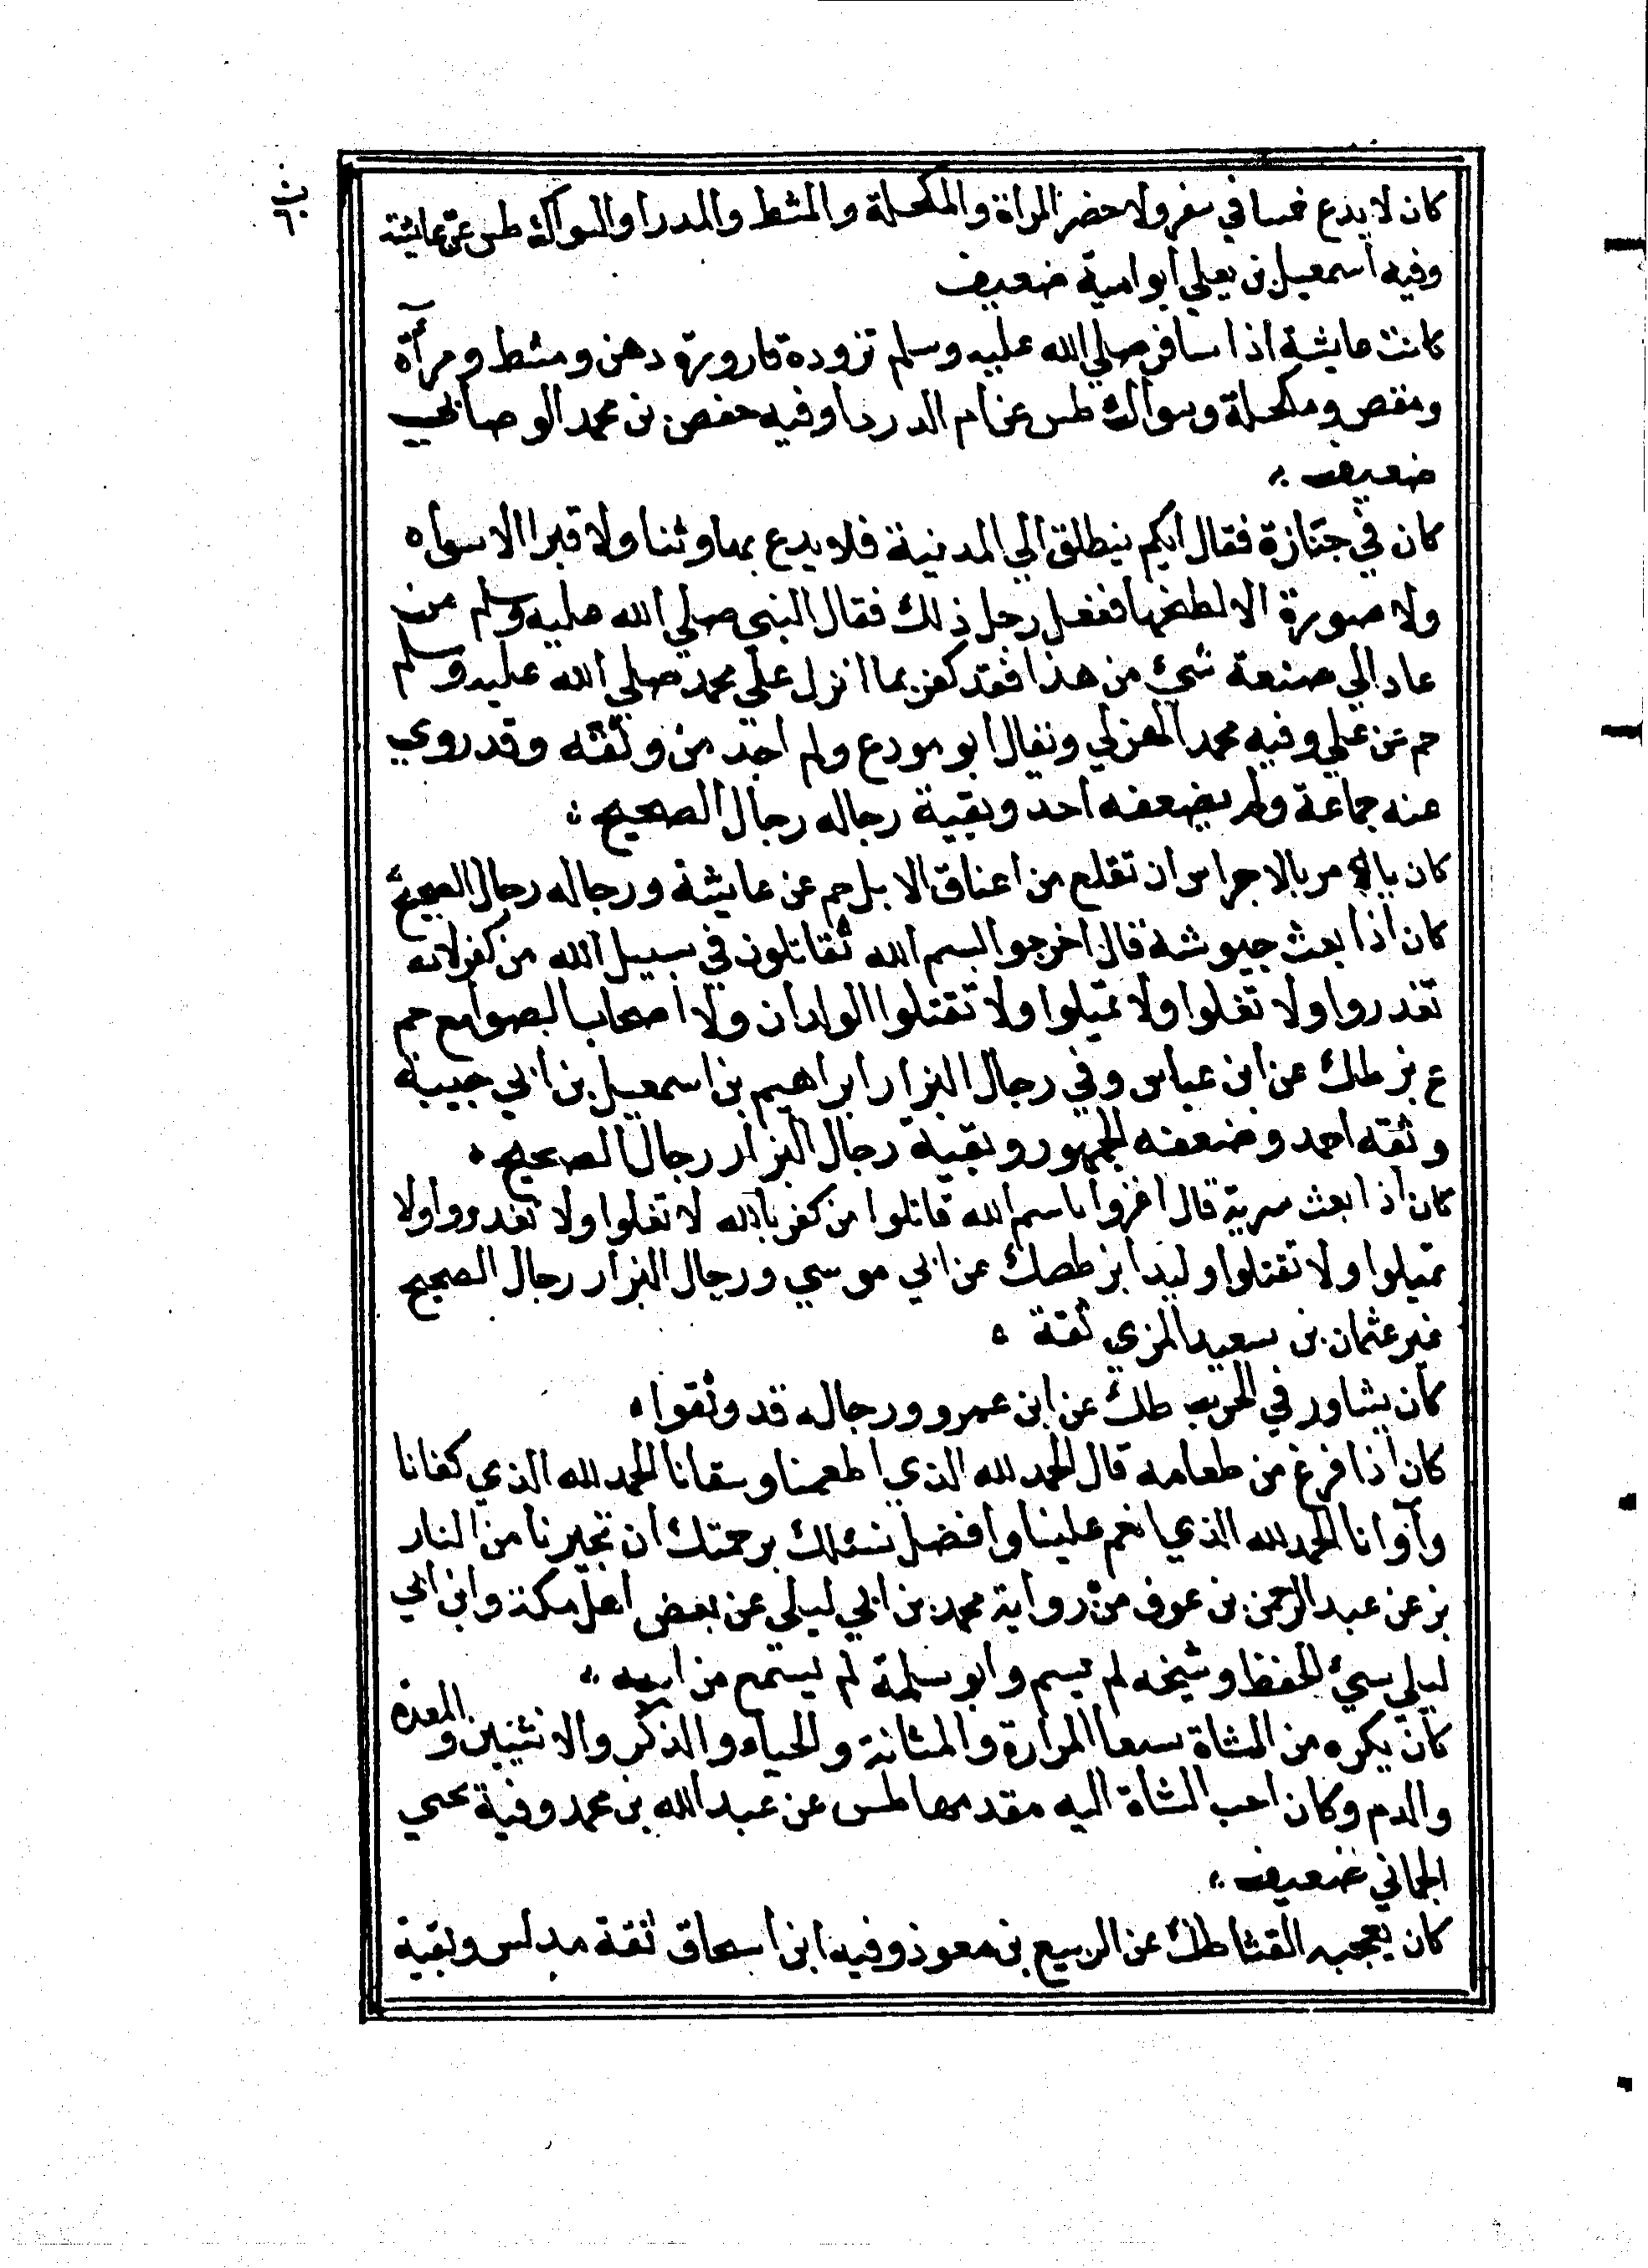 كان لا يدع خمسا في سفر ولا حضر المرآة والمكحلة والمشط والمدرا والسواك طس عن عايشة
وفيه اسمعيل بن يعلي ابو امية ضعيف
كانت عايشة اذا سافر صلي الله عليه وسلم تزوده قارورة دهن ومشط ومرآة
ومقص ومكحلة وسواك طس عن ام الدردا وفيه حفص بن محمد الوصابي
ضعيف
كان في جنازة فقال ايكم ينطلق الي المدنية فلا يدع بها وثنا ولا قبرا الا سواه
ولا صورة الا لطخها ففعل رجل ذلك فقال النبي صلي الله عليه وسلم من
عاد الي صنعة شيء من هذا فقد كفر بما انزل علي محمد صلي الله عليه وسلم
حم عن علي وفيه محمد الهزلي ويقال ابو مورع ولم اجد من وثقه وقد روي
عنه جماعة ولم يضعفه احد وبقية رجاله رجال الصحيح
كان يامر بالاجراس ان تقلع من اعناق الابل حم عن عايشة ورجاله رجال الصحيح
كان اذا بعث جيوشه قال اخرجوا بسم الله تقاتلون في سبيل الله من كفر لاته
تغدروا ولا تغلوا ولا تمثلوا ولا تقتلوا الولدان ولا اصحاب الصوامع حم
ع بز طك عن ابن عباس وفي رجال البزار ابراهيم بن اسمعيل بن ابي حبيبة
وثقه احمد وضعفه الجمهور وبقية رجال البزار رجال الصحيح
كان اذا بعث سرية قال اغزوا باسم الله قاتلوا من كفر بالله لا تغلوا ولا تغدروا ولا
تمثلوا ولا تقتلوا وليدا بز طصك عن ابي موسي ورجال البزار رجال الصحيح
غير عثمان بن سعيد المزي ثقة
كان يشاور في الحرب طك عن ابن عمرو ورجاله قد وثقوا
كان اذا فرغ من طعامه قال الحمد لله الذي اطعمنا وسقانا الحمد لله الذي كفانا
وآوانا الحمد لله الذي انعم علينا وافضل نسئلك برحمتك ان تجيرنا من النار
بز عن عبد الرحمن بن عوف من رواية محمد بن ابي ليلي عن بعض اهل مكة وابن ابي
ليلي سيء الحفظ وشيخه لم يسم وابو سلمة لم يسمع من ابيه
كان يكره من الشاة سبعا المرارة والمثانة والحياء والذكر والانثيين والغدة
والدم وكان احب الشاة اليه مقدمها طس عن عبد الله بن محمد وفية يحيي
الحماني ضعيف
كان يعجبه القثا طك عن الربيع بن معوذ وفيه ابن اسحاق ثقة مدلس وبقية